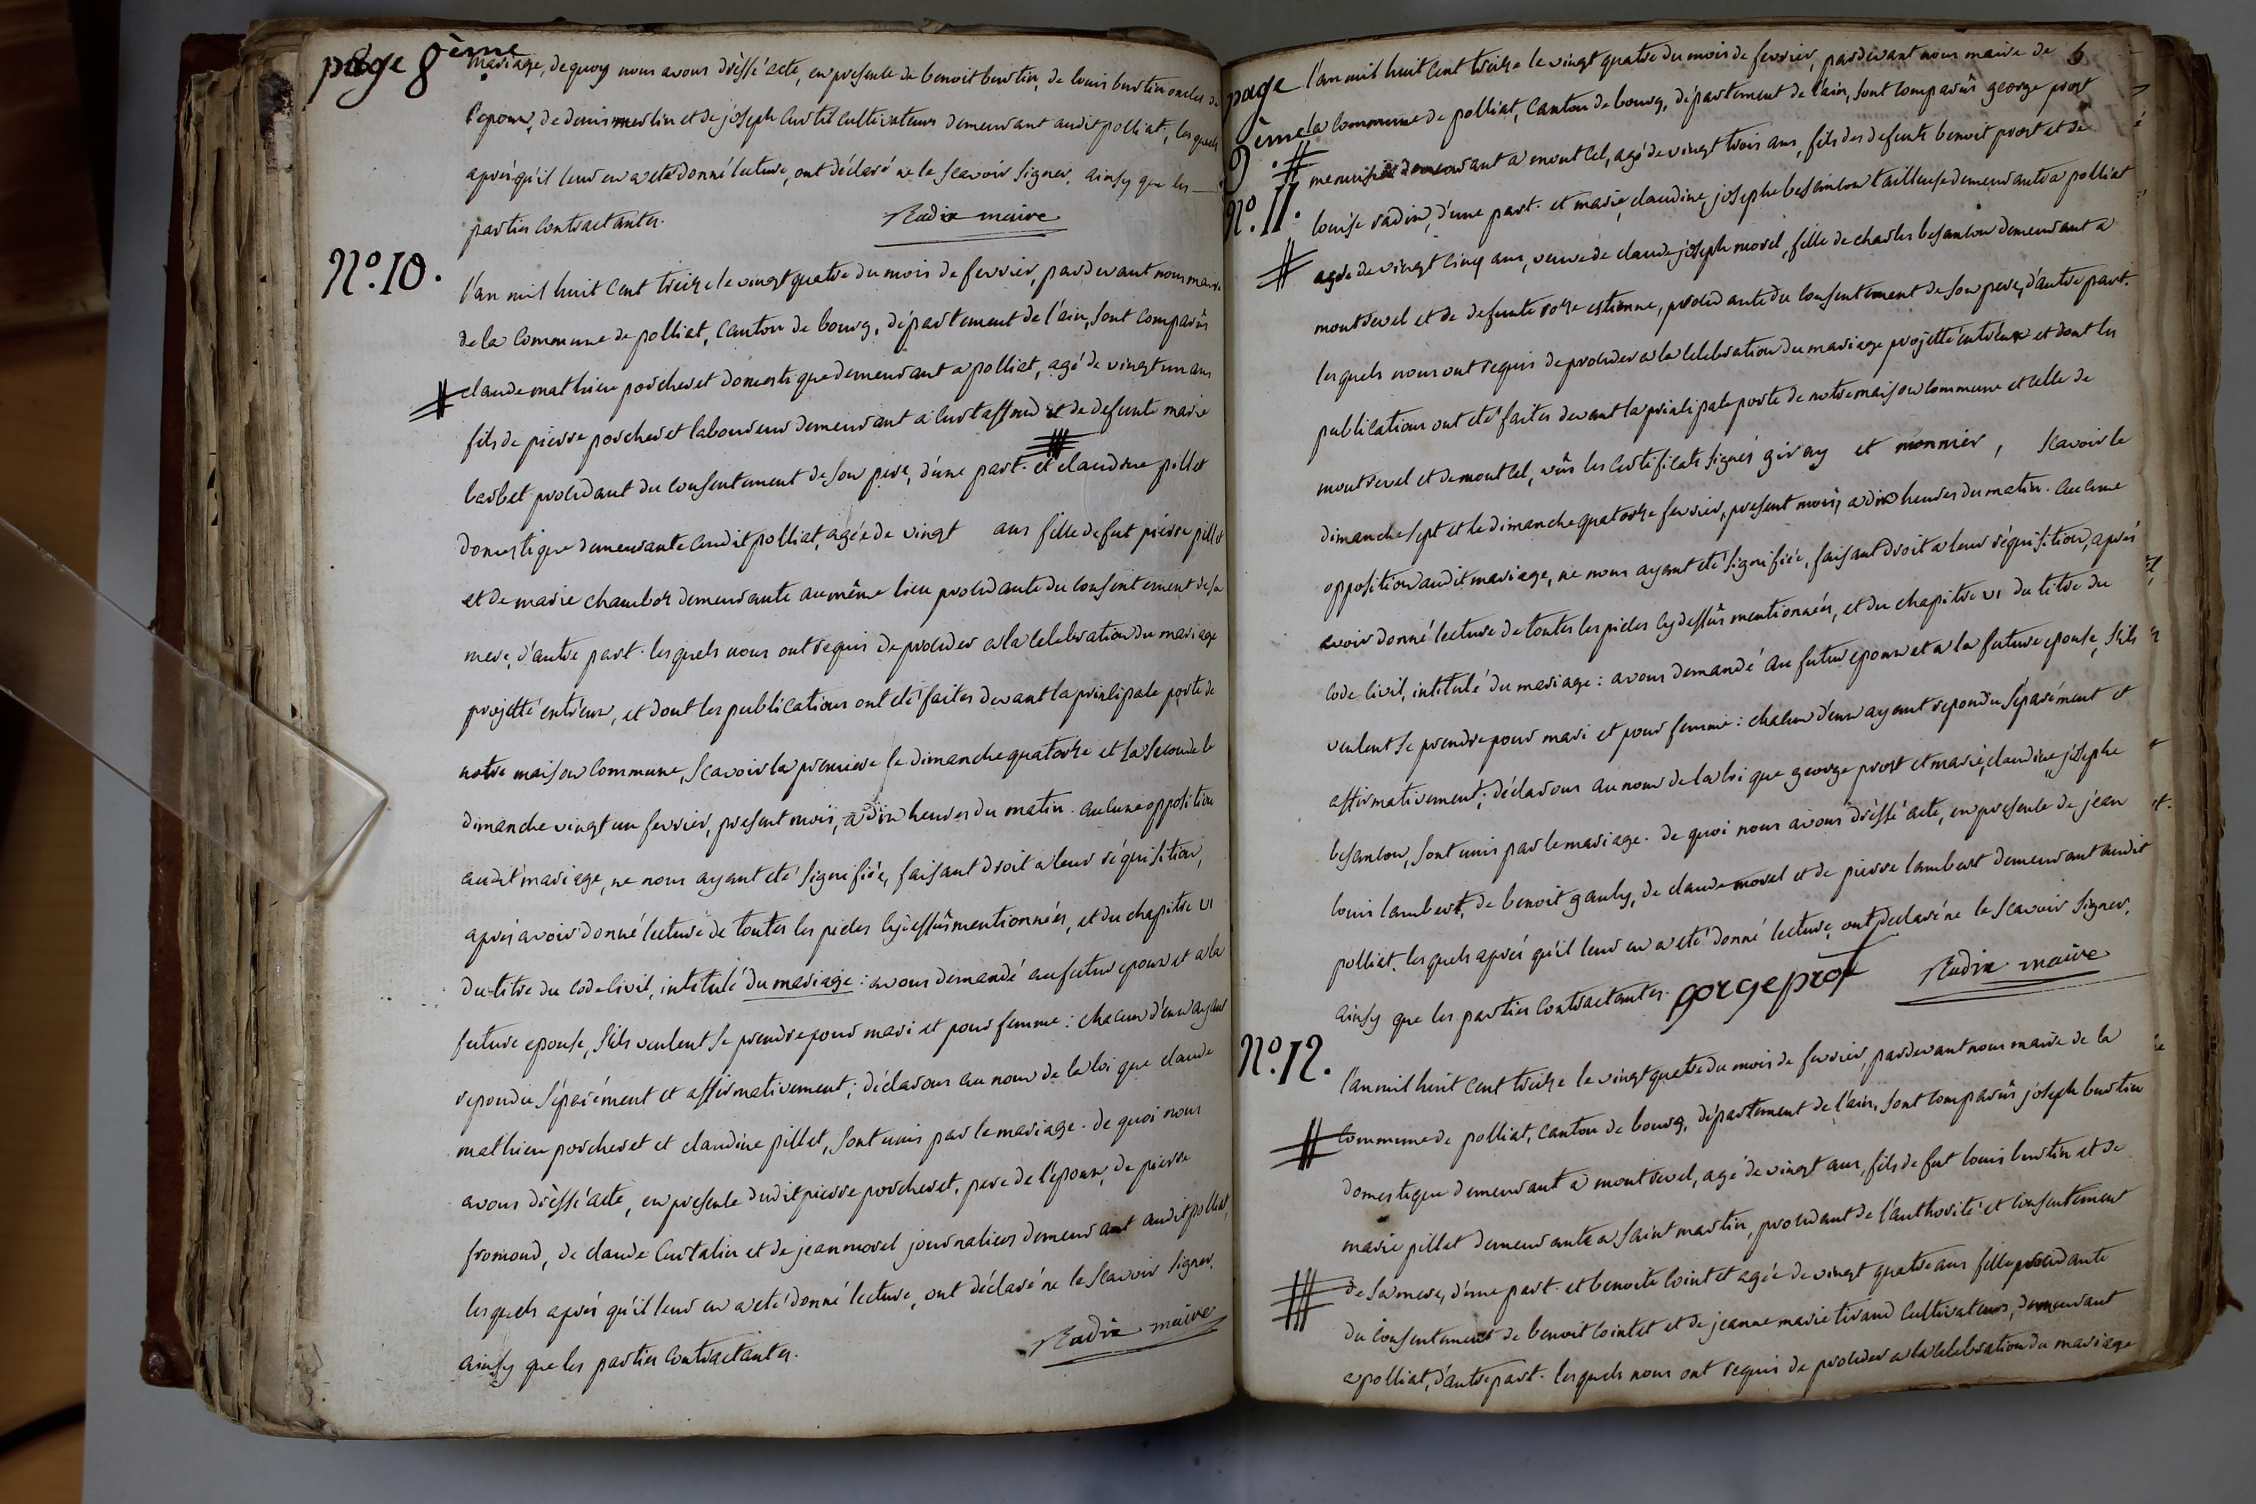 page 8ème
mariage, de quoy nous avons dréssé acte, en presence de benoit burtin, de louis burtin oncles de
l'epoux, de denis merlin et de joseph curtil cultivateurs demeurant audit polliat, les quels
aprés qu'il leur en a eté donné lecture, ont déclaré ne le scavoir signer, ainsy que les
parties contractantes. Radix maire
No. 10.
l'an mil huit cent treize le vingt quatre du mois de fevrier, pardevant nous maire
de la commune de polliat, canton de bourg, département de l'ain, sont comparûs
claude mathieu porcheret domestique demeurant a polliat, agé de vingt un ans
fils de pierre porcheret laboureur demeurant a curtaffond et de defunte marie
barbet procedant du consentement de son pere, d'une part. et claudine pillet
domestique demeurante audit polliat, agée de vingt ans fille de fut pierre pillet
et de marie chambor demeurante au même lieu procedante du consentement de sa
mere, d'autre part. les quels nous ont requis de proceder a la celebration du mariage
projetté entr'eux, et dont les publications ont eté faites devant la principale porte de
notre maison commune, scavoir la premiere le dimanche quatorze et la seconde le
dimanche vingt un fevrier, present mois, a dix heures du matin. aucune opposition
audit mariage, ne nous ayant eté signifiée, faisant droit a leur réquisition,
aprés avoir donné lecture de toutes les pieces cy dessûs mentionnées, et du chapitre VI
du titre du code civil, intitulé du mariage : avons demandé au futur epoux et a la
future epouse, s'ils veulent se prendre pour mari et pour femme : chacun d'eux ayant
repondu séparément et affirmativement ; déclarons au nom de la loi que claude
mathieu porcheret et claudine pillet, sont unis par le mariage. de quoi nous
avons dréssé acte, en presence dudit pierre porcheret, pere de l'epoux, de pierre
fromond, de claude curtalin et de jean morel journaliers demeurant audit polliat,
les quels aprés qu'il leur en a eté donné lecture, ont déclaré ne le scavoir signer,
ainsy que les parties contractantes. Radix maire
page 9ème
6
No. 11.
l'an mil huit cent treize le vingt quatre du mois de fevrier, pardevant nous maire de
la commune de polliat, canton de bourg, département de l'ain, sont comparûs george prost
menuisier demeurant a montcel, agé de vingt trois ans, fils des defunts benoit prost et de
louise radix, d'une part. et marie, claudine, josephe besancon tailleuse demeurante a polliat
agée de vingt cinq ans, veuve de claude joseph morel, fille de charles besancon demeurant a
montrevel et de defunte roze estienne, procedante du consentement de son pere, d'autre part.
les quels nous ont requis de proceder a la celebration du mariage projetté entr'eux et dont les
publications ont eté faites devant la principale porte de notre maison commune et celle de
montrevel et de montcel, vûs les certificats signés giray et monnier, scavoir le
dimanche sept et le dimanche quatorze fevrier, present mois, a dix heures du matin. aucune
opposition audit mariage, ne nous ayant eté signifiée, faisant droit a leur réquisition, aprés
avoir donné lecture de toutes les pieces cy dessûs mentionnées, et du chapitre VI du titre du
code civil, intitulé du mariage : avons demandé au futur epoux et a la future epouse, s'ils
veulent se prendre pour mari et pour femme : chacun d'eux ayant repondu séparément et
affirmativement ; déclarons au nom de la loi que george prost et marie, claudine, josephe
besancon, sont unis par le mariage. de quoi nous avons dréssé acte, en presence de jean
louis lambert, de benoit gauly, de claude morel et de pierre lambert demeurant audit
polliat. les quels aprés qu'il leur en a eté donné lecture, ont declaré ne le scavoir signer,
ainsy que les parties contractantes. gorge prot Radix maire
No. 12.
l'an mil huit cent treize le vingt quatre du mois de fevrier, pardevant nous maire de la
commune de polliat, canton de bourg, département de l'ain, sont comparûs joseph burtin
domestique demeurant a montrevel, agé de vingt ans, fils de fut louis burtin et de
marie pillet demeurante a saint martin, procedant de l'authorité et consentement
de sa mere, d'une part. et benoite cointet agée de vingt quatre ans fille procedante
du consentement de benoit cointet et de jeanne marie tirand cultivateurs, demeurant
a polliat, d'autre part. les quels nous ont requis de proceder a la celebration du mariage